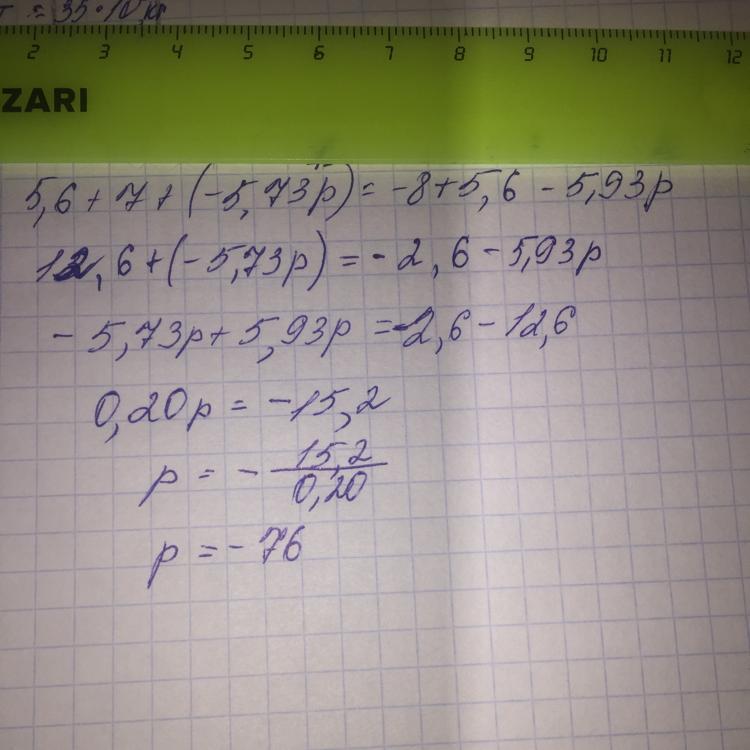 τ = 35·10 кг
2 3 4 5 6 7 8 9 10 11 12
ZARI
5,6 + 7 + (-5,73p) = -8 + 5,6 - 5,93p
12,6 + (-5,73p) = -2,6 - 5,93p
- 5,73p + 5,93p = -2,6 - 12,6
0,20p = -15,2
p = - 15,2/0,20
p = - 76